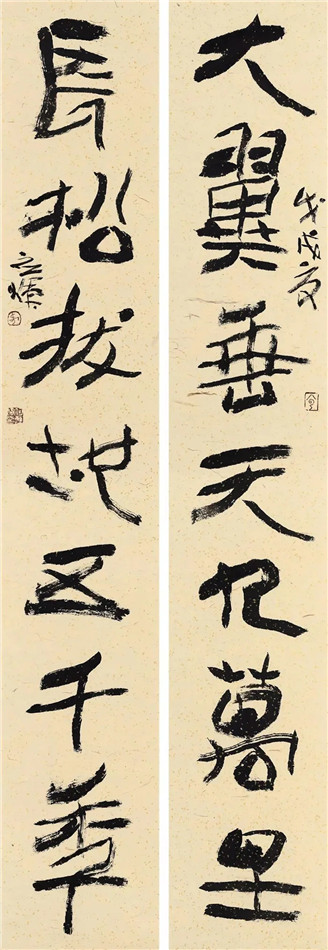 大翼垂天九萬里
戊戌夏
長松拔地五千年